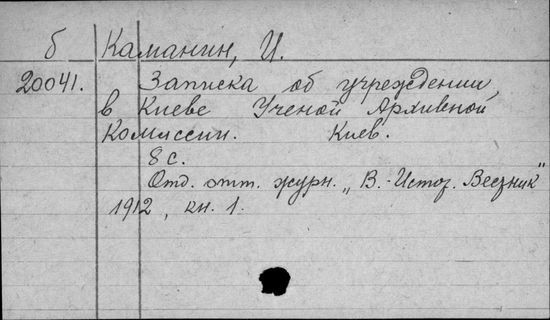 б Каманин, И.
20041. Записка об учреждении
в Киеве Ученой Архивной
Комиссии. Киев.
8 с.
Отд. отт. журн. „В.-Истор. Вестник"
1912, кн. 1.